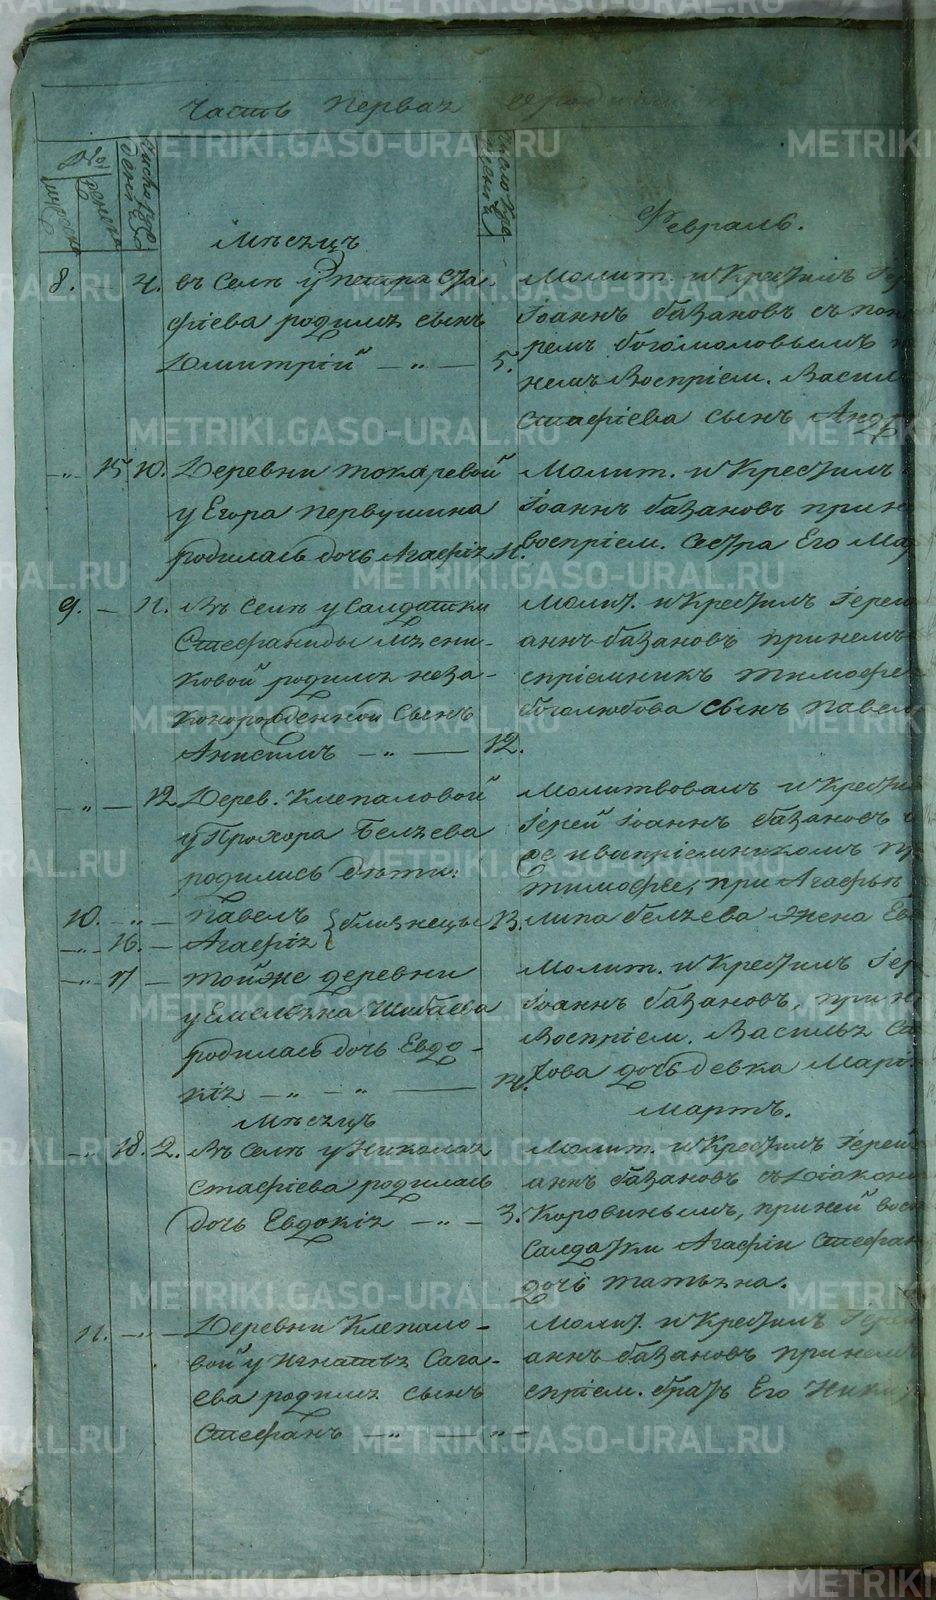 Часть первая о родив
№
мужеска
женска
Мѣсяцъ
Февраль.
8. 4. въ селѣ у Петра Ста-
фіева родился сынъ
Димитрій — „ — 5.
Молит. и Крестилъ Іер
Іоаннъ Базановъ съ пон
ремъ Богомоловымъ
немъ Воспріем. Васил
Стафіева сынъ Андр
„ 15 10. Деревни Токаревой
у Егора Первушина
родилась дочь Агафія 11.
Молит. и Крестилъ
Іоаннъ Базановъ при н
воспріем. Сестра Его Мар
9. — 11. Въ селѣ у Салдатки
Стефаниды Мѣсни-
ковой родился неза-
конорожденной сынъ
Анисимъ — „ — 12.
Молит. и Крестилъ Іерей
аннъ Базановъ при немъ
спріемникъ Тимофе
Боголюбова сынъ Павел
„ — 12 Дерев. Клепаловой
у Прохора Беляева
родились дѣти:
10. — „ — Павелъ
„ 16. — Агафія } близнецы 13.
Молитвовалъ и Крестил
Іерей Іоаннъ Базановъ
же и воспріемникомъ пр
Тимофее, при Агафьи
липа Беляева жена Ев
„ 17 — Той же деревни
у Емельяна Шибаева
родилась дочь Евдо-
кія — „ — „ — 14.
Молит. и Крестилъ Іер
Іоаннъ Базановъ, при н
Воспріем. Василья Са
това дочь девка Марі
Мѣсяцъ
Мартъ.
„ 18. 2. Въ селѣ у Николая
Стафіева родилась
дочь Евдокія — „ — 3.
Молит. и Крестилъ Іерей
аннъ Базановъ съ Діакон
Коровинымъ, при ней вос
Салдатки Агафіи Стефан
дочь Татьяна.
11. — „ — Деревни Клепало-
вой у Игнатья Сага-
ева родился сынъ
Стефанъ — „ — „ —
Молит. и Крестилъ Іерей
аннъ Базановъ при немъ
спріем. братъ Его Ники
METRIKI.GASO-URAL.RU